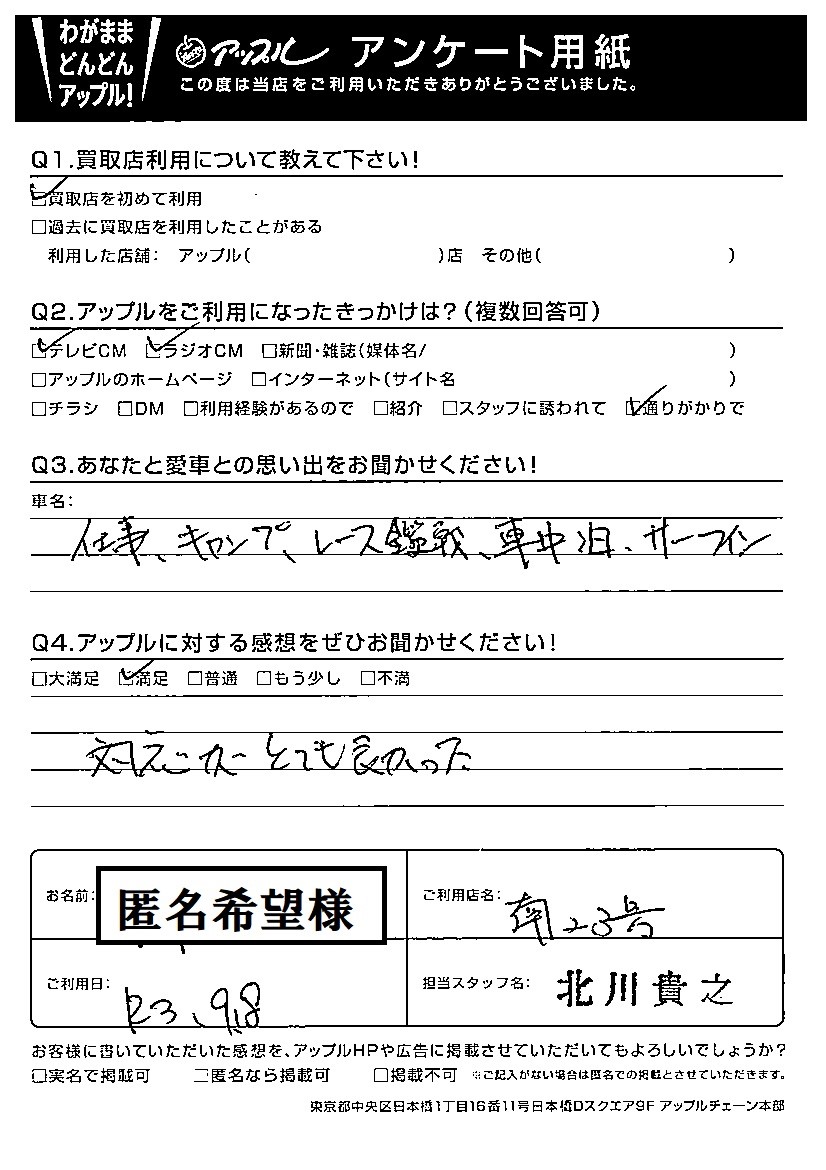 わがまま
どんどん
アップル!
アップル アンケート用紙
この度は当店をご利用いただきありがとうございました。
Q1.買取店利用について教えて下さい!
☑買取店を初めて利用
□過去に買取店を利用したことがある
利用した店舗: アップル( )店 その他( )
Q2.アップルをご利用になったきっかけは?(複数回答可)
☑テレビCM ☑ラジオCM □新聞・雑誌(媒体名/ )
□アップルのホームページ □インターネット(サイト名 )
□チラシ □DM □利用経験があるので □紹介 □スタッフに誘われて ☑通りがかりで
Q3.あなたと愛車との思い出をお聞かせください!
車名:
仕事、キャンプ、レース鑑戦、車中泊、サーフィン
Q4.アップルに対する感想をぜひお聞かせください!
□大満足 ☑満足 □普通 □もう少し □不満
対応がとても良かった
お名前: 匿名希望様
ご利用店名: 南23号
ご利用日: R3、9,8
担当スタッフ名: 北川貴之
お客様に書いていただいた感想を、アップルHPや広告に掲載させていただいてもよろしいでしょうか?
□実名で掲載可 □匿名なら掲載可 □掲載不可 ※ご記入がない場合は匿名での掲載とさせていただきます。
東京都中央区日本橋1丁目16番11号日本橋Dスクエア9F アップルチェーン本部